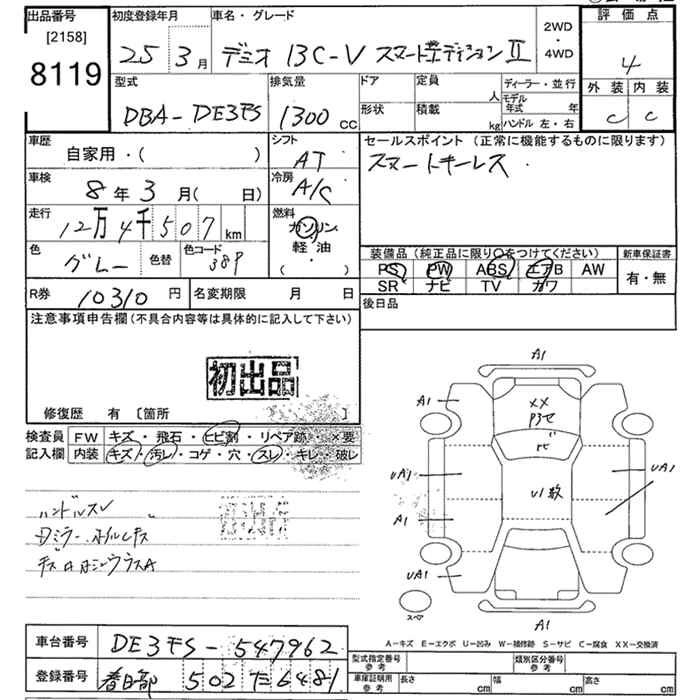 出品番号 初度登録年月 車名・グレード 2WD・4WD 評価点
[2158]
8119 25年3月 デミオ 13C-V スマートエディションⅡ 4
型式 排気量 ドア 定員 人 ディーラー・並行 外装 内装
DBA-DE3FS 1300cc 形状 積載 kg モデル年式 年 ハンドル 左・右 C C
車歴 自家用・( ) シフト AT セールスポイント(正常に機能するものに限ります)
車検 8年3月( 日) 冷房 A/C スマートキーレス
走行 12万4千507km 燃料 ガソリン 軽油 ( ・ )
色 グレー 色替 色コード 38P
装備品(純正品に限り〇をつけてください) 新車保証書
PS PW ABS エアB AW 有・無
SR ナビ TV カワ
R券 10310円 名変期限 月 日 後日品
注意事項申告欄(不具合内容等は具体的に記入して下さい)
初出品
修復歴 有 〔箇所 〕
検査員 FW キズ・飛石・ヒビ割・リペア跡・×要
記入欄 内装 キズ・汚レ・コゲ・穴・スレ・キレ・破レ
ハンドルスレ
A1
A1 XX
UA1 U1数 UA1
A1
UA1
スペア A1
A-キズ E-エクボ U-凹み W-補修跡 S-サビ C-腐食 XX-交換済
車台番号 DE3FS-547962
型式指定番号 参考 類別区分番号 参考
登録番号 春日部 502 6481
車庫証明用 参考 長さ cm 幅 cm 高さ cm